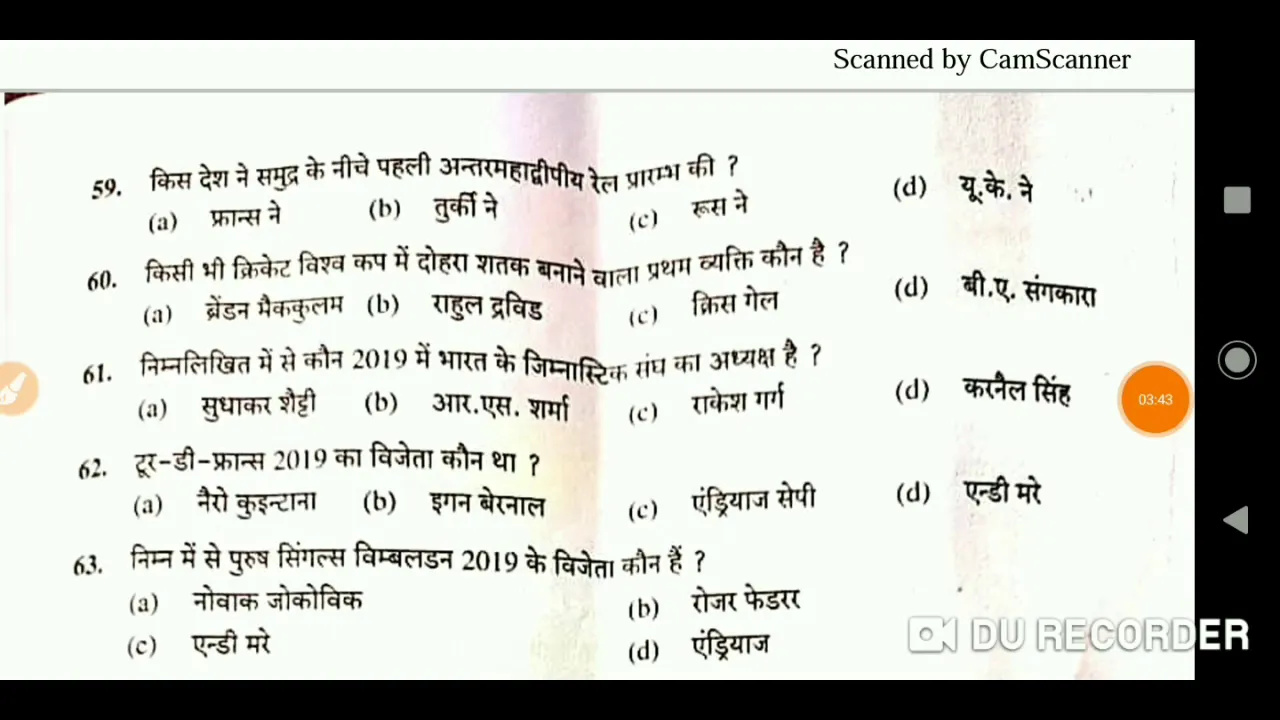 Scanned by CamScanner
59. किस देश ने समुद्र के नीचे पहली अन्तरमहाद्वीपीय रेल प्रारम्भ की ?
(a) फ्रान्स ने (b) तुर्की ने (c) रूस ने (d) यू.के. ने
60. किसी भी क्रिकेट विश्व कप में दोहरा शतक बनाने वाला प्रथम व्यक्ति कौन है ?
(a) ब्रेंडन मैककुलम (b) राहुल द्रविड (c) क्रिस गेल (d) बी.ए. संगकारा
61. निम्नलिखित में से कौन 2019 में भारत के जिम्नास्टिक संघ का अध्यक्ष है ?
(a) सुधाकर शैट्टी (b) आर.एस. शर्मा (c) राकेश गर्ग (d) करनैल सिंह
03:43
62. टूर-डी-फ्रान्स 2019 का विजेता कौन था ?
(a) नैरो कुइन्टाना (b) इगन बेरनाल (c) एंड्रियाज सेपी (d) एन्डी मरे
63. निम्न में से पुरुष सिंगल्स विम्बलडन 2019 के विजेता कौन हैं ?
(a) नोवाक जोकोविक (b) रोजर फेडरर
(c) एन्डी मरे (d) एंड्रियाज
DU RECORDER